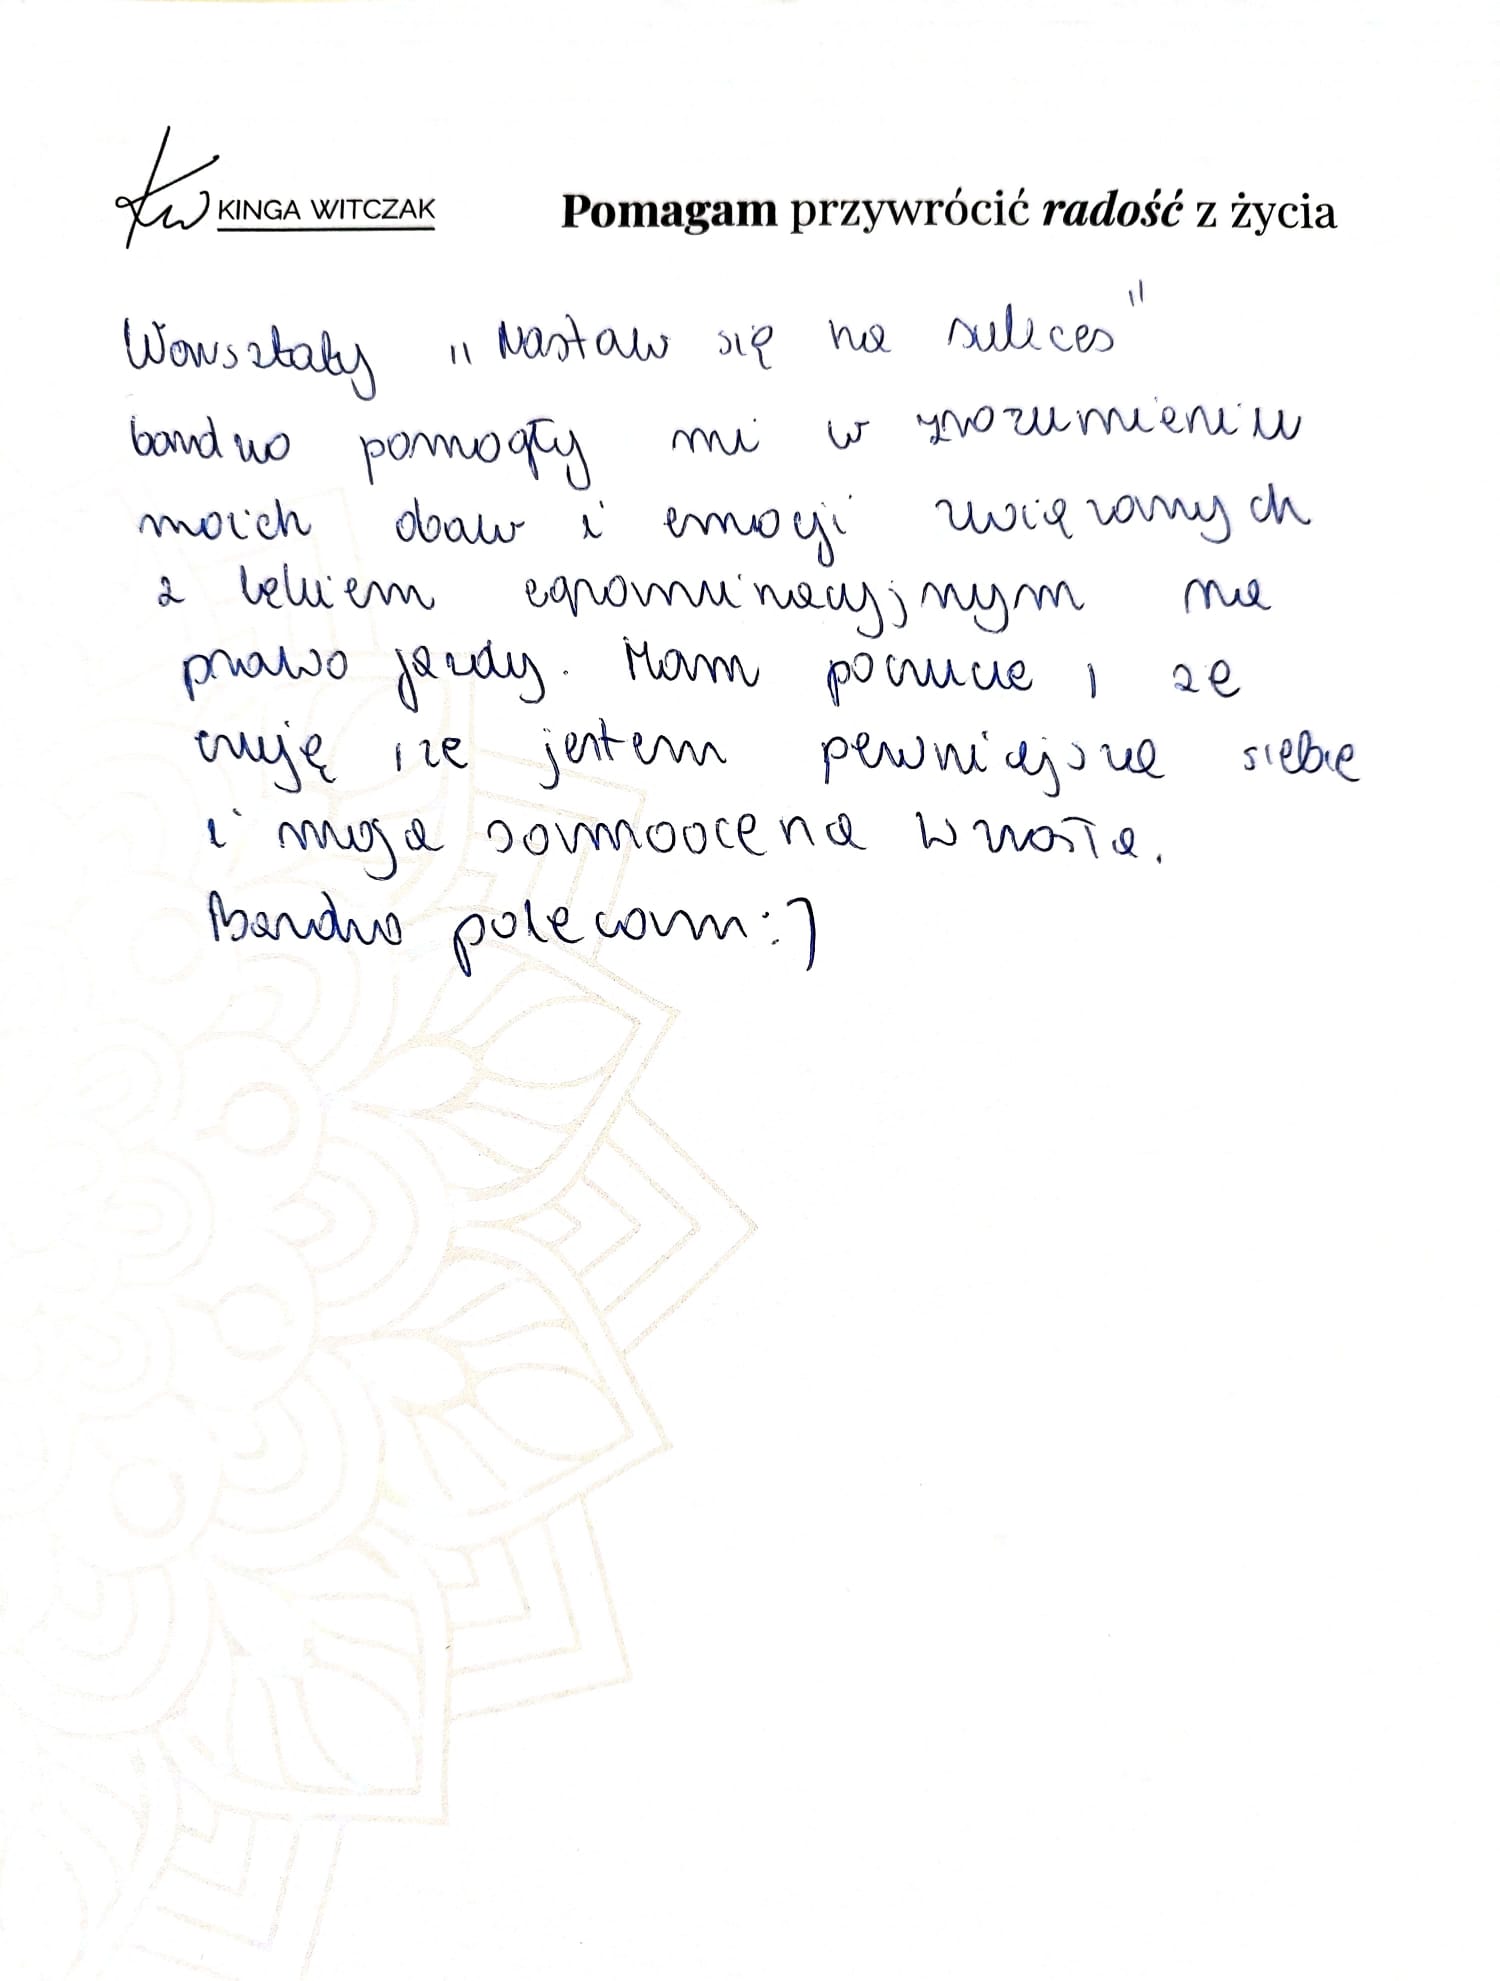 KW KINGA WITCZAK
Pomagam przywrócić radość z życia
Warsztaty "Nastaw się na sukces"
bardzo pomogły mi w zrozumieniu
moich obaw i emocji związanych
z lękiem egzaminacyjnym na
prawo jazdy. Mam poczucie, że
czuję, że jestem pewniejsza siebie
i moja samoocena wzrosła.
Bardzo polecam :)